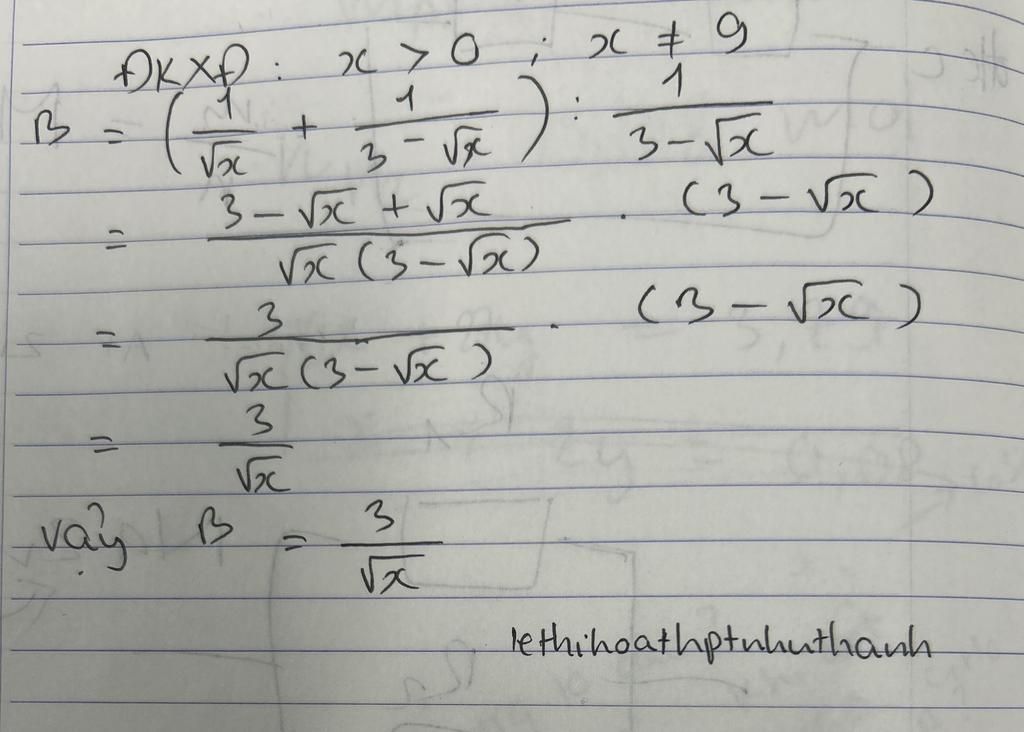 ĐKXĐ : x > 0 ; x ≠ 9
B = (1/√x + 1/(3 - √x)) : 1/(3 - √x)
= (3 - √x + √x)/(√x (3 - √x)) . (3 - √x)
= 3/(√x (3 - √x)) . (3 - √x)
= 3/√x
Vậy B = 3/√x
lethihoathptnhuthanh